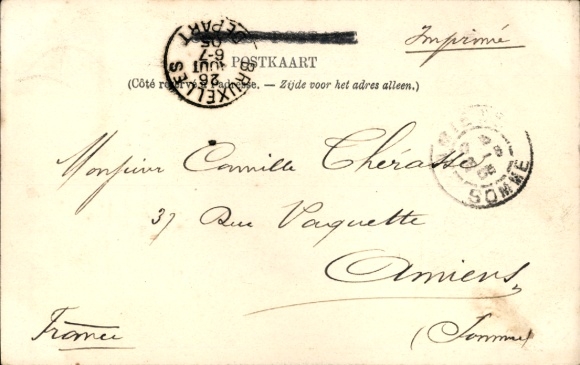 Imprimé
POSTKAART
(Côté réservé à l'adresse. — Zijde voor het adres alleen.)
BRUXELLES
DÉPART
26
AOUT
6-7
05
AMIENS
SOMME
Monsieur Camille Thérasse
37 Rue Vaquette
Amiens
(Somme)
France